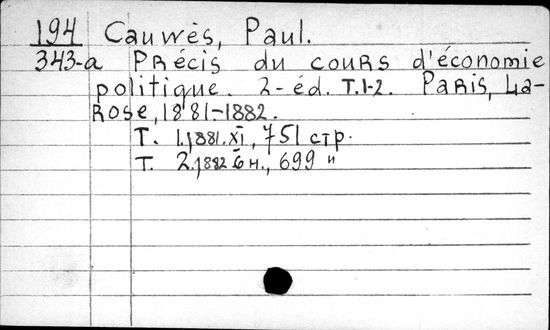 194 Cauwès, Paul.
343-a Précis du cours d'économie
politique. 2-éd. T.1-2. Paris, La-
rose, 1881-1882.
T. 1. 1881. XI, 751 стр.
T. 2. 1882. 699 "